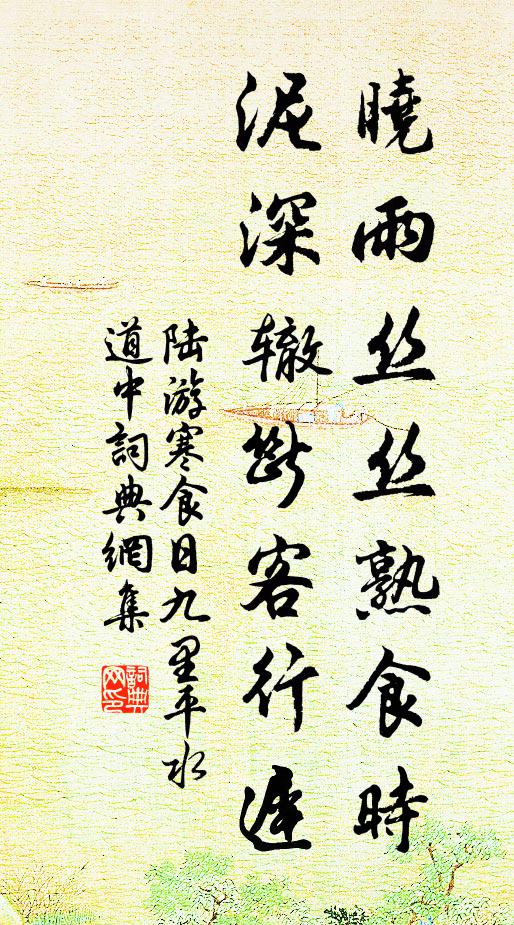 曉雨丝丝熟食時
泥深辙斷客行遲
陆游寒食日九里平水
道中詞典網集
詞典
网印